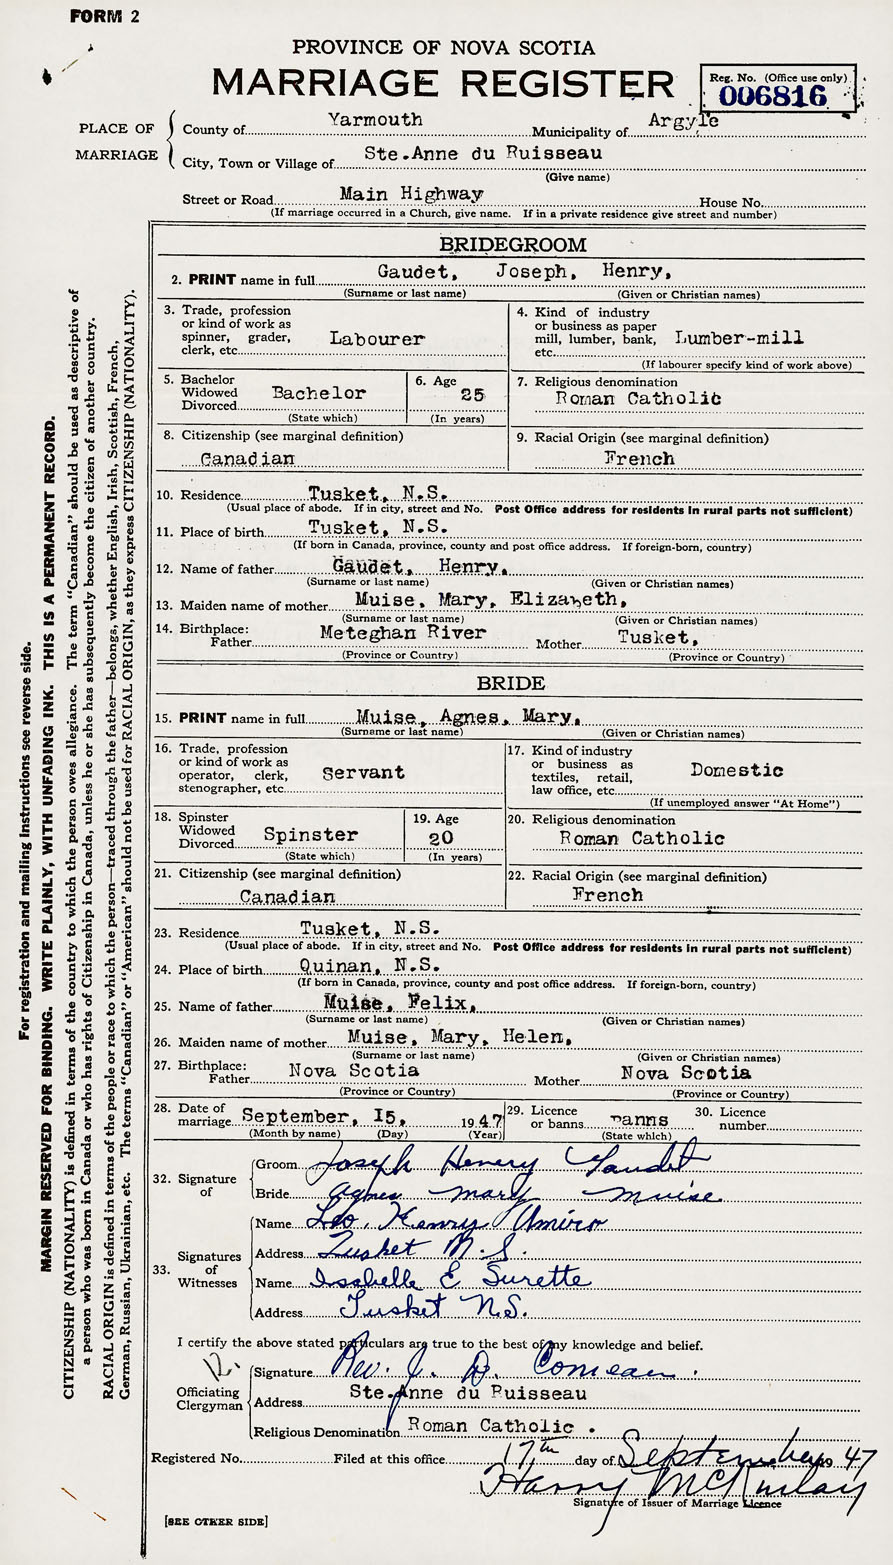 FORM 2
PROVINCE OF NOVA SCOTIA
MARRIAGE REGISTER
Reg. No. (Office use only)
006816
PLACE OF MARRIAGE
County of Yarmouth Municipality of Argyle
City, Town or Village of Ste.Anne du Ruisseau
(Give name)
Street or Road Main Highway House No.
(If marriage occurred in a Church, give name. If in a private residence give street and number)
BRIDEGROOM
2. PRINT name in full Gaudet, Joseph, Henry,
(Surname or last name) (Given or Christian names)
3. Trade, profession or kind of work as spinner, grader, clerk, etc. Labourer
4. Kind of industry or business as paper mill, lumber, bank, etc. Lumber-mill
(If labourer specify kind of work above)
5. Bachelor Widowed Divorced Bachelor
(State which)
6. Age 25
(In years)
7. Religious denomination
Roman Catholic
8. Citizenship (see marginal definition)
Canadian
9. Racial Origin (see marginal definition)
French
10. Residence Tusket, N.S.
(Usual place of abode. If in city, street and No. Post Office address for residents in rural parts not sufficient)
11. Place of birth Tusket, N.S.
(If born in Canada, province, county and post office address. If foreign-born, country)
12. Name of father Gaudet, Henry,
(Surname or last name) (Given or Christian names)
13. Maiden name of mother Muise, Mary, Elizabeth,
(Surname or last name) (Given or Christian names)
14. Birthplace: Father Meteghan River Mother Tusket,
(Province or Country) (Province or Country)
BRIDE
15. PRINT name in full Muise, Agnes, Mary,
(Surname or last name) (Given or Christian names)
16. Trade, profession or kind of work as operator, clerk, stenographer, etc. Servant
17. Kind of industry or business as textiles, retail, law office, etc. Domestic
(If unemployed answer "At Home")
18. Spinster Widowed Divorced Spinster
(State which)
19. Age 20
(In years)
20. Religious denomination
Roman Catholic
21. Citizenship (see marginal definition)
Canadian
22. Racial Origin (see marginal definition)
French
23. Residence Tusket, N.S.
(Usual place of abode. If in city, street and No. Post Office address for residents in rural parts not sufficient)
24. Place of birth Quinan, N.S.
(If born in Canada, province, county and post office address. If foreign-born, country)
25. Name of father Muise, Felix,
(Surname or last name) (Given or Christian names)
26. Maiden name of mother Muise, Mary, Helen,
(Surname or last name) (Given or Christian names)
27. Birthplace: Father Nova Scotia Mother Nova Scotia
(Province or Country) (Province or Country)
28. Date of marriage September, 15, 1947
(Month by name) (Day) (Year)
29. Licence or banns Banns
(State which)
30. Licence number
32. Signature of
Groom Joseph Henry Gaudet
Bride Agnes Mary Muise
33. Signatures of Witnesses
Name Leo. Henry Amiro
Address Tusket N.S.
Name Isabelle E Surette
Address Tusket N.S.
I certify the above stated particulars are true to the best of my knowledge and belief.
Officiating Clergyman
Signature Rev. J. D. Comeau.
Address Ste.Anne du Ruisseau
Religious Denomination Roman Catholic.
Registered No. Filed at this office 17th day of September 1947
Harry McKinlay
Signature of Issuer of Marriage Licence
[SEE OTHER SIDE]
For registration and mailing instructions see reverse side.
MARGIN RESERVED FOR BINDING. WRITE PLAINLY, WITH UNFADING INK. THIS IS A PERMANENT RECORD.
CITIZENSHIP (NATIONALITY) is defined in terms of the country to which the person owes allegiance. The term "Canadian" should be used as descriptive of
a person who was born in Canada or who has rights of Citizenship in Canada, unless he or she has subsequently become the citizen of another country.
RACIAL ORIGIN is defined in terms of the people or race to which the person—traced through the father—belongs, whether English, Irish, Scottish, French,
German, Russian, Ukrainian, etc. The terms "Canadian" or "American" should not be used for RACIAL ORIGIN, as they express CITIZENSHIP (NATIONALITY).